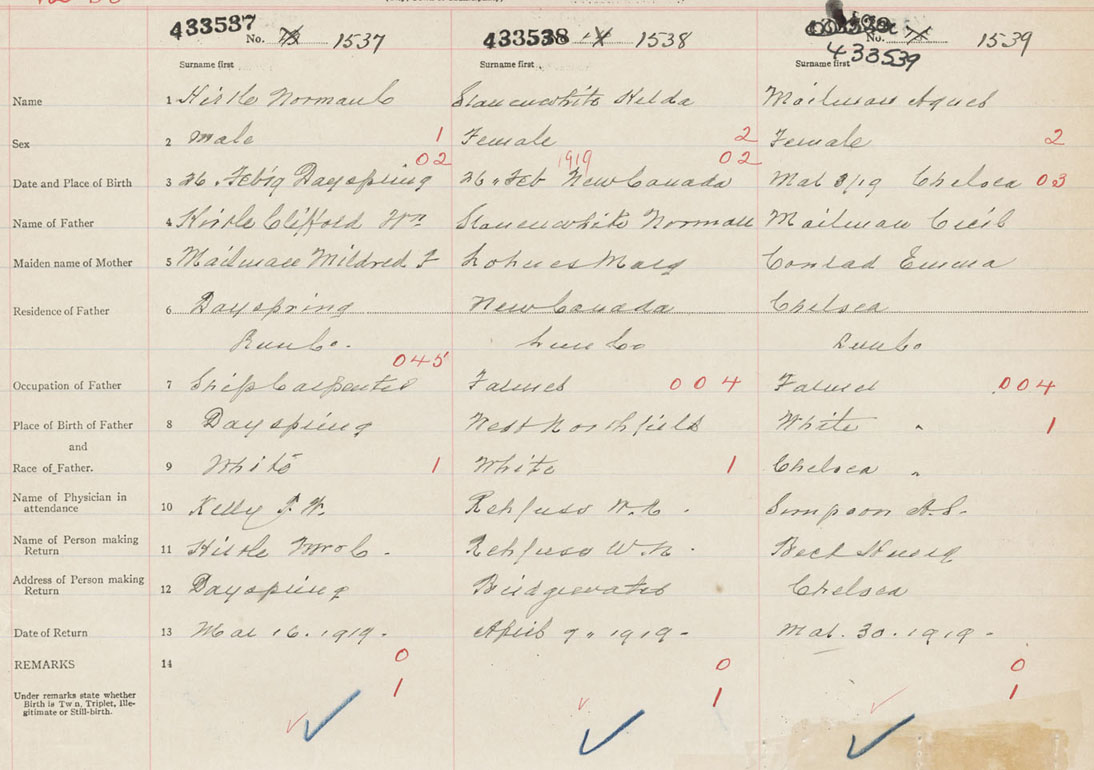 433537 No. 1537 433538 1538 No. 1539
433539
Surname first Surname first Surname first
Name 1 Hirtle Norman C Slauenwhite Hilda Mailman Agnes
Sex 2 Male 1 Female 2 Female 2
02 1919 02
Date and Place of Birth 3 26 " Feb 19 Dayspring 26 " Feb New Canada Mar 3/19 Chelsea 03
Name of Father 4 Hirtle Clifford Wm Slauenwhite Norman Mailman Cecil
Maiden name of Mother 5 Mailman Mildred F Lohnes Mary Conrad Emma
Residence of Father 6 Dayspring New Canada Chelsea
Lun Co. Lun Co Lun Co
045
Occupation of Father 7 Ship Carpenter Farmer 004 Farmer 004
Place of Birth of Father 8 Dayspring West Northfield White " 1
and
Race of Father. 9 White 1 White 1 Chelsea "
Name of Physician in
attendance 10 Kelly Rehfuss W.N. Simpson A.S.
Name of Person making
Return 11 Hirtle Rehfuss W.N. Beck
Address of Person making
Return 12 Dayspring Bridgewater Chelsea
Date of Return 13 Mar 16. 1919. April 9 " 1919 - Mar. 30. 1919 -
REMARKS 14 0 0 0
Under remarks state whether
Birth is Twn, Triplet, Ille-
gitimate or Still-birth. 1 1 1